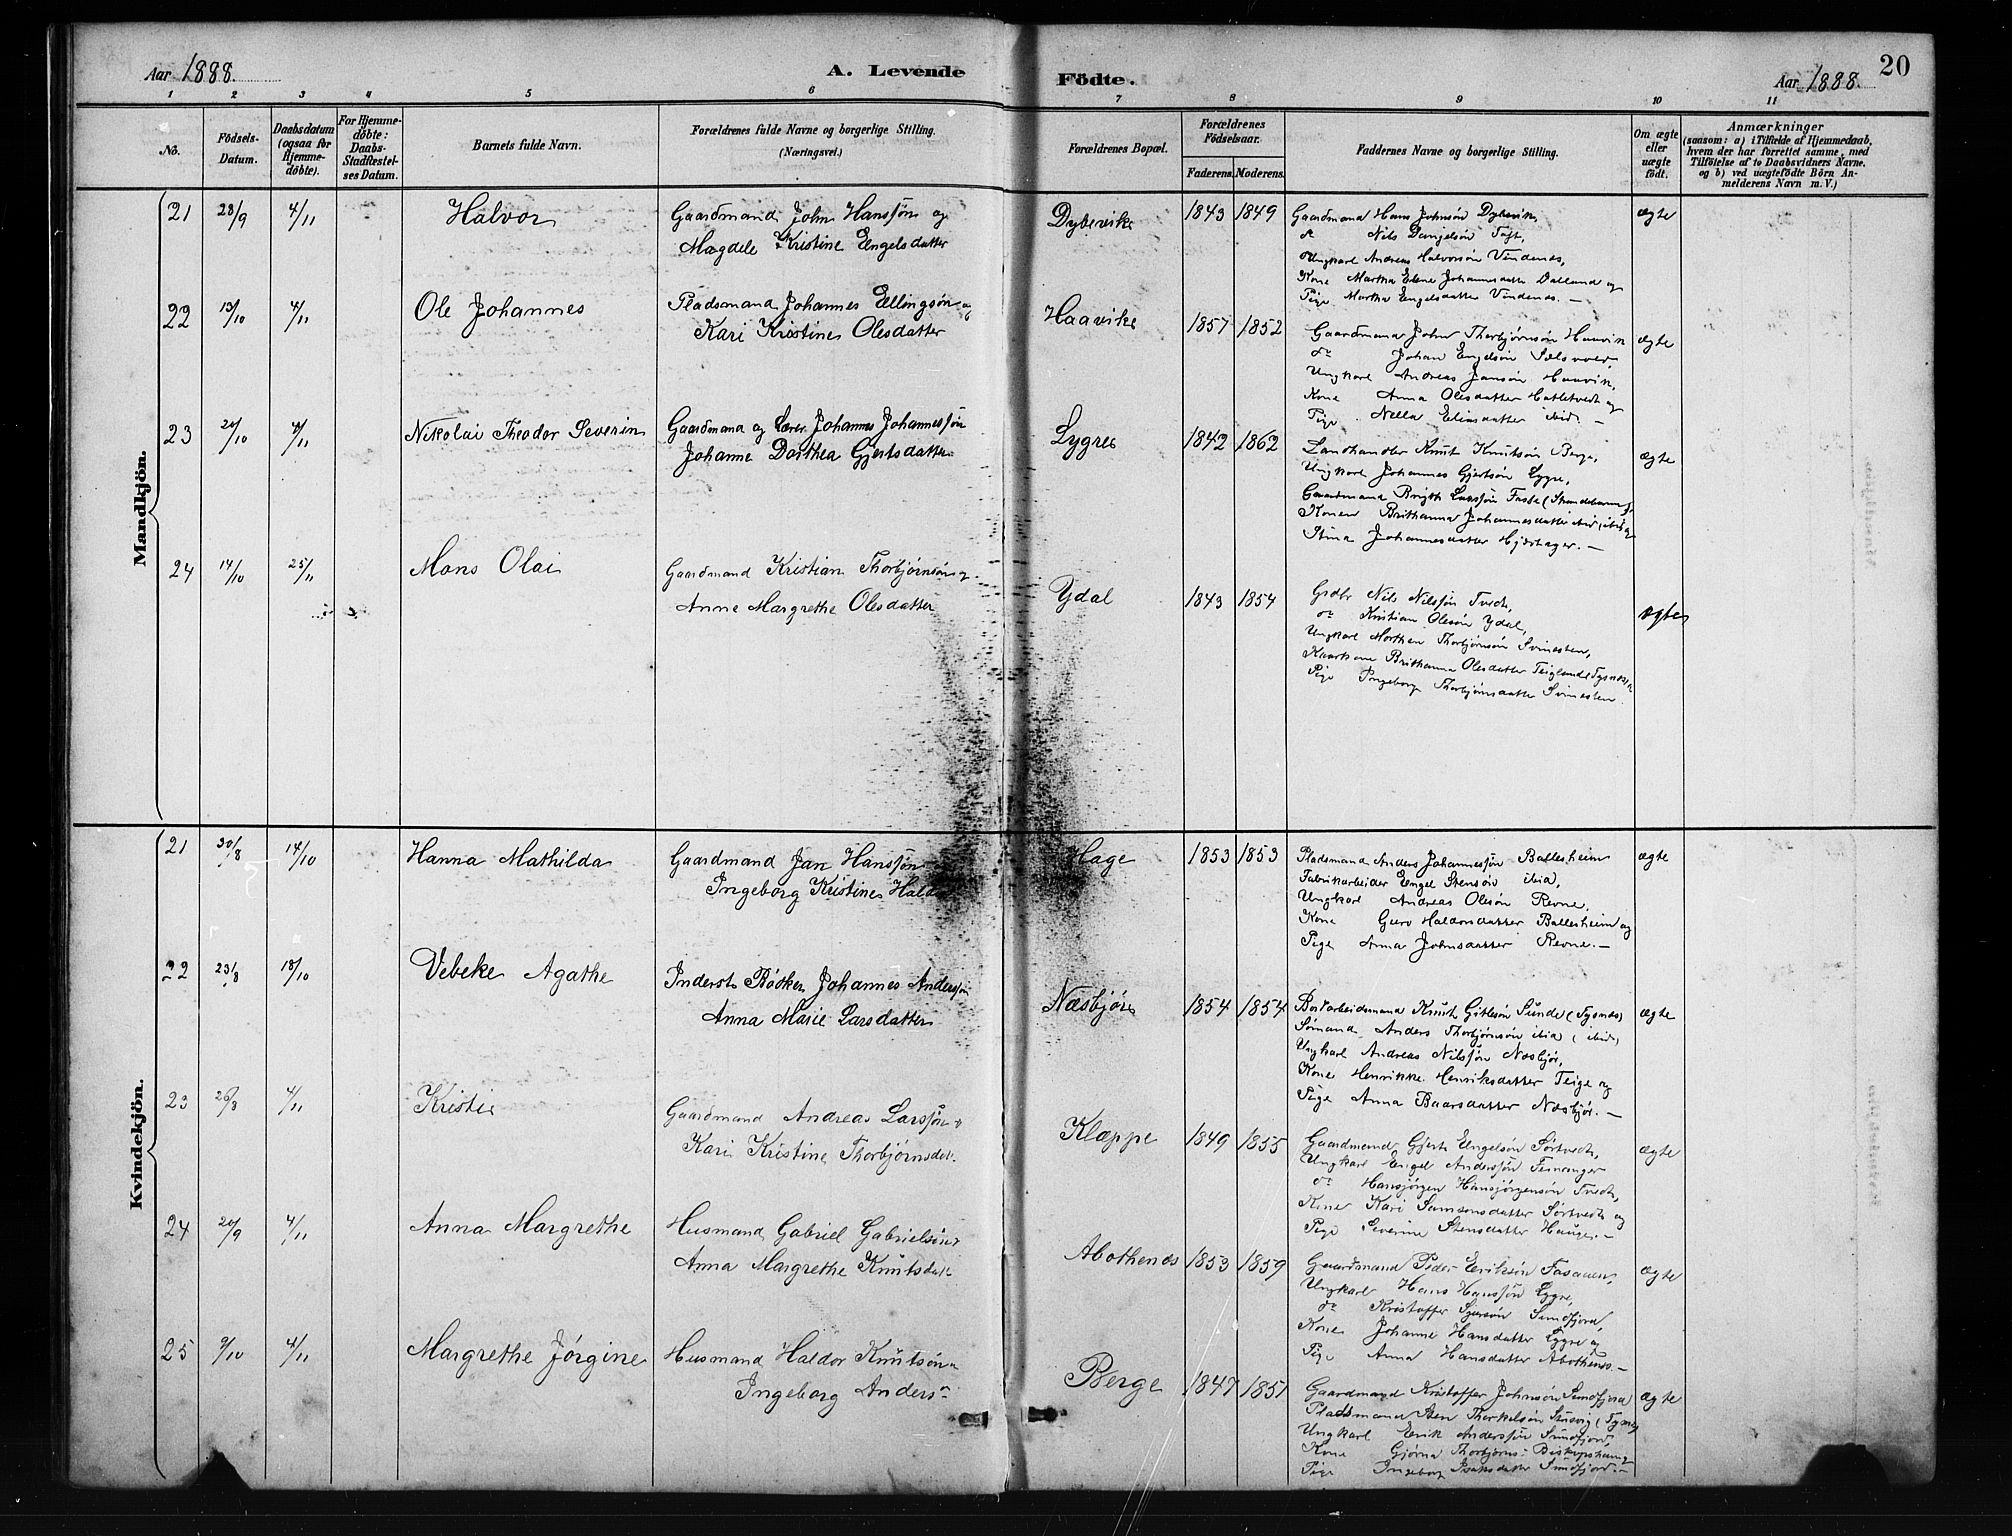 Aar 1888.
A. Levende
Födte.
Aar 1888.
20
1 2 3 4 5 6 7 8 9 10 11
No.
Födsels-
Datum.
Daabsdatum
(ogsaa for
Hjemme-
döbte).
For Hjemme-
döbte:
Daabs-
Stadfæstel-
ses Datum.
Barnets fulde Navn.
Forældrenes fulde Navne og borgerlige Stilling.
(Næringsvei.)
Forældrenes Bopæl.
Forældrenes
Födselsaar.
Faderens. Moderens.
Faddernes Navne og borgerlige Stilling.
Om ægte
eller
uægte
födt.
Anmærkninger
(saasom: a) i Tilfælde af Hjemmedaab,
hvem der har forrettet samme, med
Tilföielse af to Daabsvidners Navne,
og b) ved uægtefödte Börn An-
melderens Navn m. V.)
Mandkjön.
21 28/9 4/11 Halvor
Gaardmand John Hanssøn og
Magdele Kristine Engelsdatter
Dybevik 1843 1849
Gaardmand Hans Johnsøn Dybevik,
do Nils Danjelsøn Toft,
Ungkarl Andreas Halvorsøn Vindenes,
Kone Martha Elene Johannesdatter Dalland og
Pige Martha Engelsdatter Vindenes. —
ægte
22 13/10 4/11 Ole Johannes
Pladsmand Johannes Ellingsøn og
Kari Kristine Olesdatter
Haavik 1857 1852
Gaardmand John Thorbjørnsøn Haavik
do Johan Engelsøn
Ungkarl Andreas Jansøn Haavik,
Kone Anna Olesdatter Hatletvedt og
Pige Nella Eliasdatter ibid. —
ægte
23 20/10 4/11 Nikolai Theodor Severin
Gaardmand og Lærer Johannes Johannessøn
Johanne Dorthea Gjertsdatter
Lygre 1842 1862
Landhandler Knut Knutsøn Berge,
Ungkarl Johannes Gjertsøn Lygre,
Gaardmand Brigth Larssøn
Konen Brithanna Johannesdatter
Stina Johannesdatter Hjørtager. —
ægte
24 14/10 25/11 Mons Olai
Gaardmand Kristian Thorbjørnsøn og
Anne Margrethe Olesdatter
Ydal 1843 1854
Grdbr Nils Nilssøn Tvedt,
do Kristian Olesøn Ydal,
Ungkarl Morthen Thorbjørnsøn Svinesten,
Brithanna Olesdatter Teigland
Pige Ingeborg Thorbjørnsdatter Svinesten.
ægte
Kvindekjön.
21 30/8 14/10 Hanna Mathilda
Gaardmand Jan Hanssøn
Ingeborg Kristine
Hage 1853 1853
Pladsmand Anders Johannessøn Ballesheim
Fabrikarbeider Engel Stensøn ibid,
Ungkarl Andreas Olesøn Revne,
Kone Guro Haldorsdatter Ballesheim og
Pige Anna Johnsdatter Revne. —
ægte
22 23/8 18/10 Vebeke Agathe
Inderst Bødker Johannes Anderssøn
Anna Marie Larsdatter
Næsbjør 1854 1854
Knut Gitlesøn Sunde (Tysnes)
Sømand Anders Thorbjørnsøn ibid (ibid)
Ungkarl Andreas Nilssøn Næsbjør,
Kone Henrikke Henriksdatter Teige og
Pige Anna Baarsdatter Næsbjør. —
ægte
23 26/8 4/11 Kristi
Gaardmand Andreas Larssøn og
Kari Kristine Thorbjørnsdat.
Klæppe 1849 1855
Gaardmand Gjert Engelsøn Sørtvedt,
Ungkarl Engel Anderssøn
do Hansjørgen Hansjørgensøn Tvedt,
Kone Kari Samsonsdatter Sørtvedt og
Pige Severine Stensdatter Hauge. —
ægte
24 20/9 4/11 Anna Margrethe
Husmand Gabriel Gabrielsøn og
Anna Margrethe Knutsdatt
Abothenæs 1853 1859
Gaardmand Peder Eriksøn
Ungkarl Hans Hanssøn Lygre,
do Kristoffer Sjursøn Sundfjord,
Kone Johanne Hansdatter Lygre og
Pige Anna Hansdatter Abothenæs. —
ægte
25 9/10 4/11 Margrethe Jørgine
Husmand Haldor Knutsøn og
Ingeborg Anders
Berge 1847 1851
Gaardmand Kristoffer Johnsøn Sundfjord
Pladsmand Sten Thorkelsøn
Ungkarl Erik Anderssøn Sundfjord,
Kone Gjørna Thorbjørns
Pige Ingeborg Isaksdatter Sundfjord. —
ægte